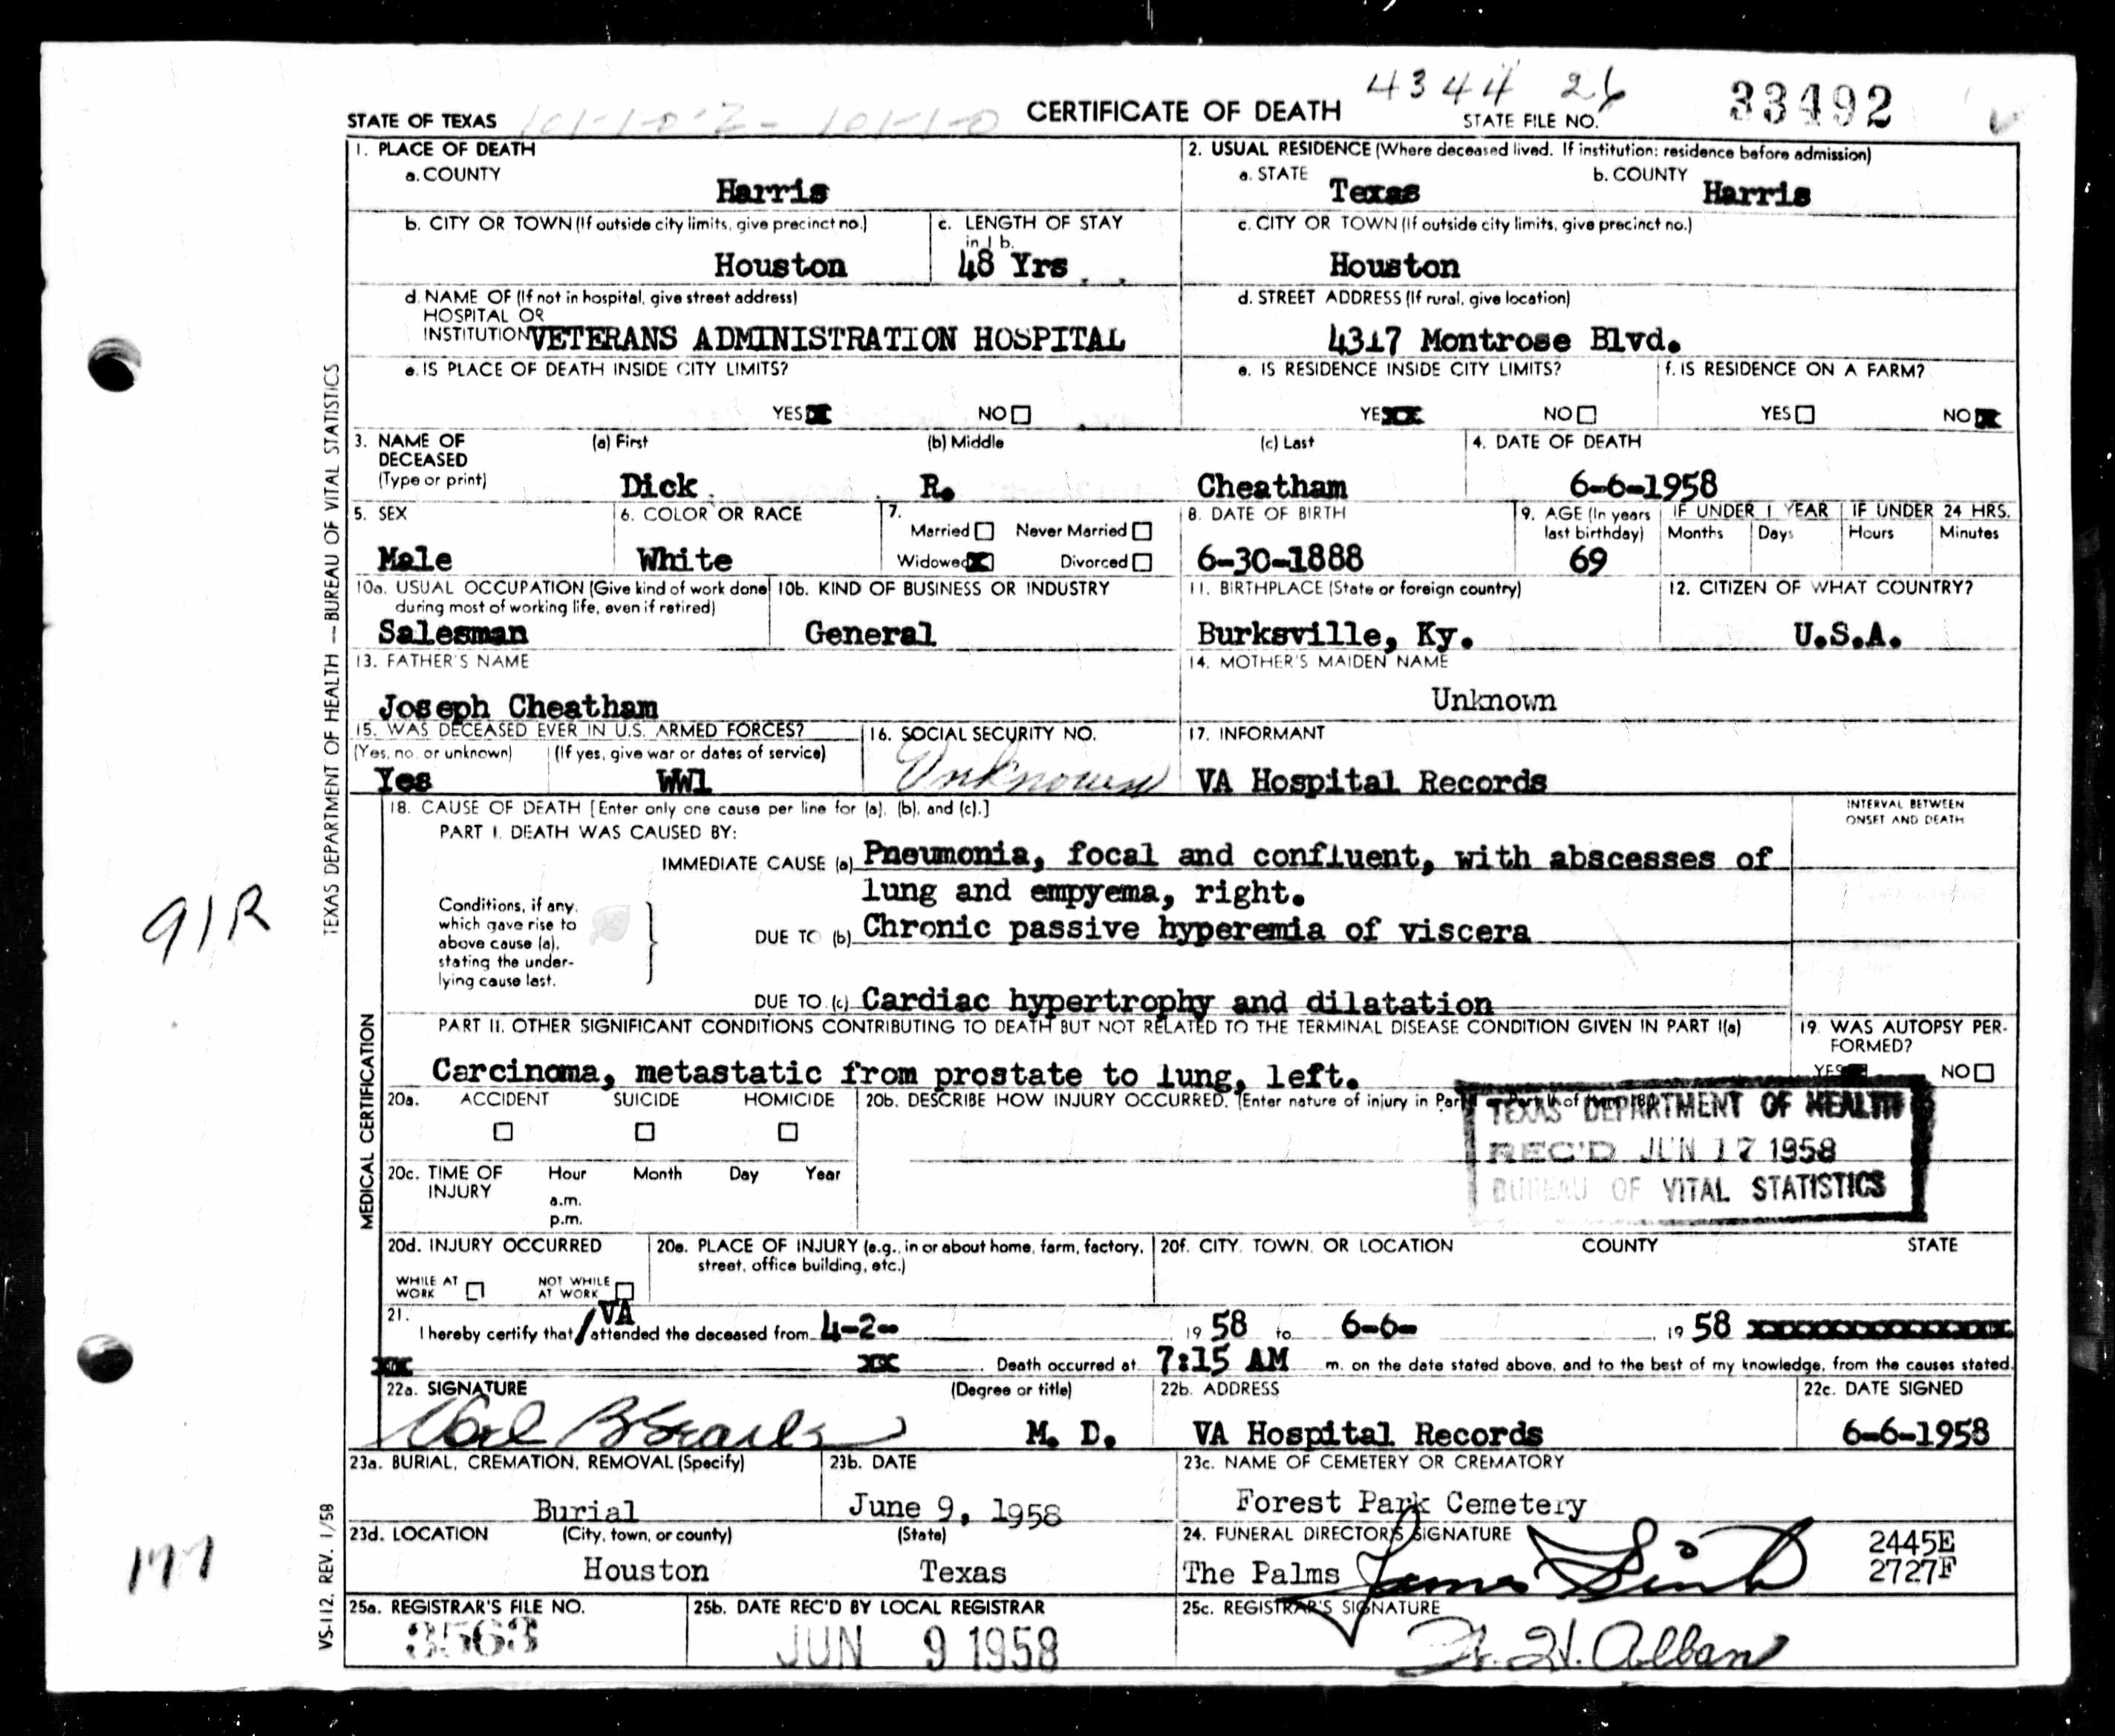 4344 26
33492
STATE OF TEXAS
CERTIFICATE OF DEATH
STATE FILE NO.
1. PLACE OF DEATH
a. COUNTY
Harris
2. USUAL RESIDENCE (Where deceased lived. If institution: residence before admission)
a. STATE
Texas
b. COUNTY
Harris
b. CITY OR TOWN (If outside city limits, give precinct no.)
Houston
c. LENGTH OF STAY
in 1 b.
48 Yrs
c. CITY OR TOWN (If outside city limits, give precinct no.)
Houston
d. NAME OF (If not in hospital, give street address)
HOSPITAL OR
INSTITUTION VETERANS ADMINISTRATION HOSPITAL
d. STREET ADDRESS (If rural, give location)
4317 Montrose Blvd.
e. IS PLACE OF DEATH INSIDE CITY LIMITS?
YES NO
e. IS RESIDENCE INSIDE CITY LIMITS?
YES NO
f. IS RESIDENCE ON A FARM?
YES NO
3. NAME OF
DECEASED
(Type or print)
(a) First
Dick
(b) Middle
R.
(c) Last
Cheatham
4. DATE OF DEATH
6-6-1958
5. SEX
Male
6. COLOR OR RACE
White
7.
Married Never Married
Widowed Divorced
8. DATE OF BIRTH
6-30-1888
9. AGE (In years
last birthday)
69
IF UNDER 1 YEAR
Months Days
IF UNDER 24 HRS.
Hours Minutes
10a. USUAL OCCUPATION (Give kind of work done
during most of working life, even if retired)
Salesman
10b. KIND OF BUSINESS OR INDUSTRY
General
11. BIRTHPLACE (State or foreign country)
Burksville, Ky.
12. CITIZEN OF WHAT COUNTRY?
U.S.A.
13. FATHER'S NAME
Joseph Cheatham
14. MOTHER'S MAIDEN NAME
Unknown
15. WAS DECEASED EVER IN U.S. ARMED FORCES?
(Yes, no, or unknown) (If yes, give war or dates of service)
Yes WW1
16. SOCIAL SECURITY NO.
Unknown
17. INFORMANT
VA Hospital Records
18. CAUSE OF DEATH [Enter only one cause per line for (a), (b), and (c).]
PART I. DEATH WAS CAUSED BY:
IMMEDIATE CAUSE (a) Pneumonia, focal and confluent, with abscesses of
lung and empyema, right.
Conditions, if any,
which gave rise to
above cause (a),
stating the under-
lying cause last.
DUE TO (b) Chronic passive hyperemia of viscera
DUE TO (c) Cardiac hypertrophy and dilatation
INTERVAL BETWEEN
ONSET AND DEATH
PART II. OTHER SIGNIFICANT CONDITIONS CONTRIBUTING TO DEATH BUT NOT RELATED TO THE TERMINAL DISEASE CONDITION GIVEN IN PART I(a)
Carcinoma, metastatic from prostate to lung, left.
19. WAS AUTOPSY PER-
FORMED?
YES NO
20a. ACCIDENT SUICIDE HOMICIDE
20b. DESCRIBE HOW INJURY OCCURRED. (Enter nature of injury in Part
TEXAS DEPARTMENT OF HEALTH
REC'D JUN 17 1958
BUREAU OF VITAL STATISTICS
20c. TIME OF
INJURY
Hour Month Day Year
a.m.
p.m.
20d. INJURY OCCURRED
WHILE AT
WORK
NOT WHILE
AT WORK
20e. PLACE OF INJURY (e.g., in or about home, farm, factory,
street, office building, etc.)
20f. CITY, TOWN, OR LOCATION COUNTY STATE
21.
VA
I hereby certify that / attended the deceased from 4-2- 19 58 to 6-6- , 19 58 xxxxxxxxxxxxxxx
xx xx Death occurred at 7:15 AM m. on the date stated above, and to the best of my knowledge, from the causes stated.
22a. SIGNATURE (Degree or title)
M. D.
22b. ADDRESS
VA Hospital Records
22c. DATE SIGNED
6-6-1958
23a. BURIAL, CREMATION, REMOVAL (Specify)
Burial
23b. DATE
June 9, 1958
23c. NAME OF CEMETERY OR CREMATORY
Forest Park Cemetery
23d. LOCATION (City, town, or county) (State)
Houston Texas
24. FUNERAL DIRECTOR'S SIGNATURE
The Palms James
2445E
2727F
25a. REGISTRAR'S FILE NO.
3563
25b. DATE REC'D BY LOCAL REGISTRAR
JUN 9 1958
25c. REGISTRAR'S SIGNATURE
W. H. Alban
TEXAS DEPARTMENT OF HEALTH — BUREAU OF VITAL STATISTICS
MEDICAL CERTIFICATION
VS-112, REV. 1/58
91R
177